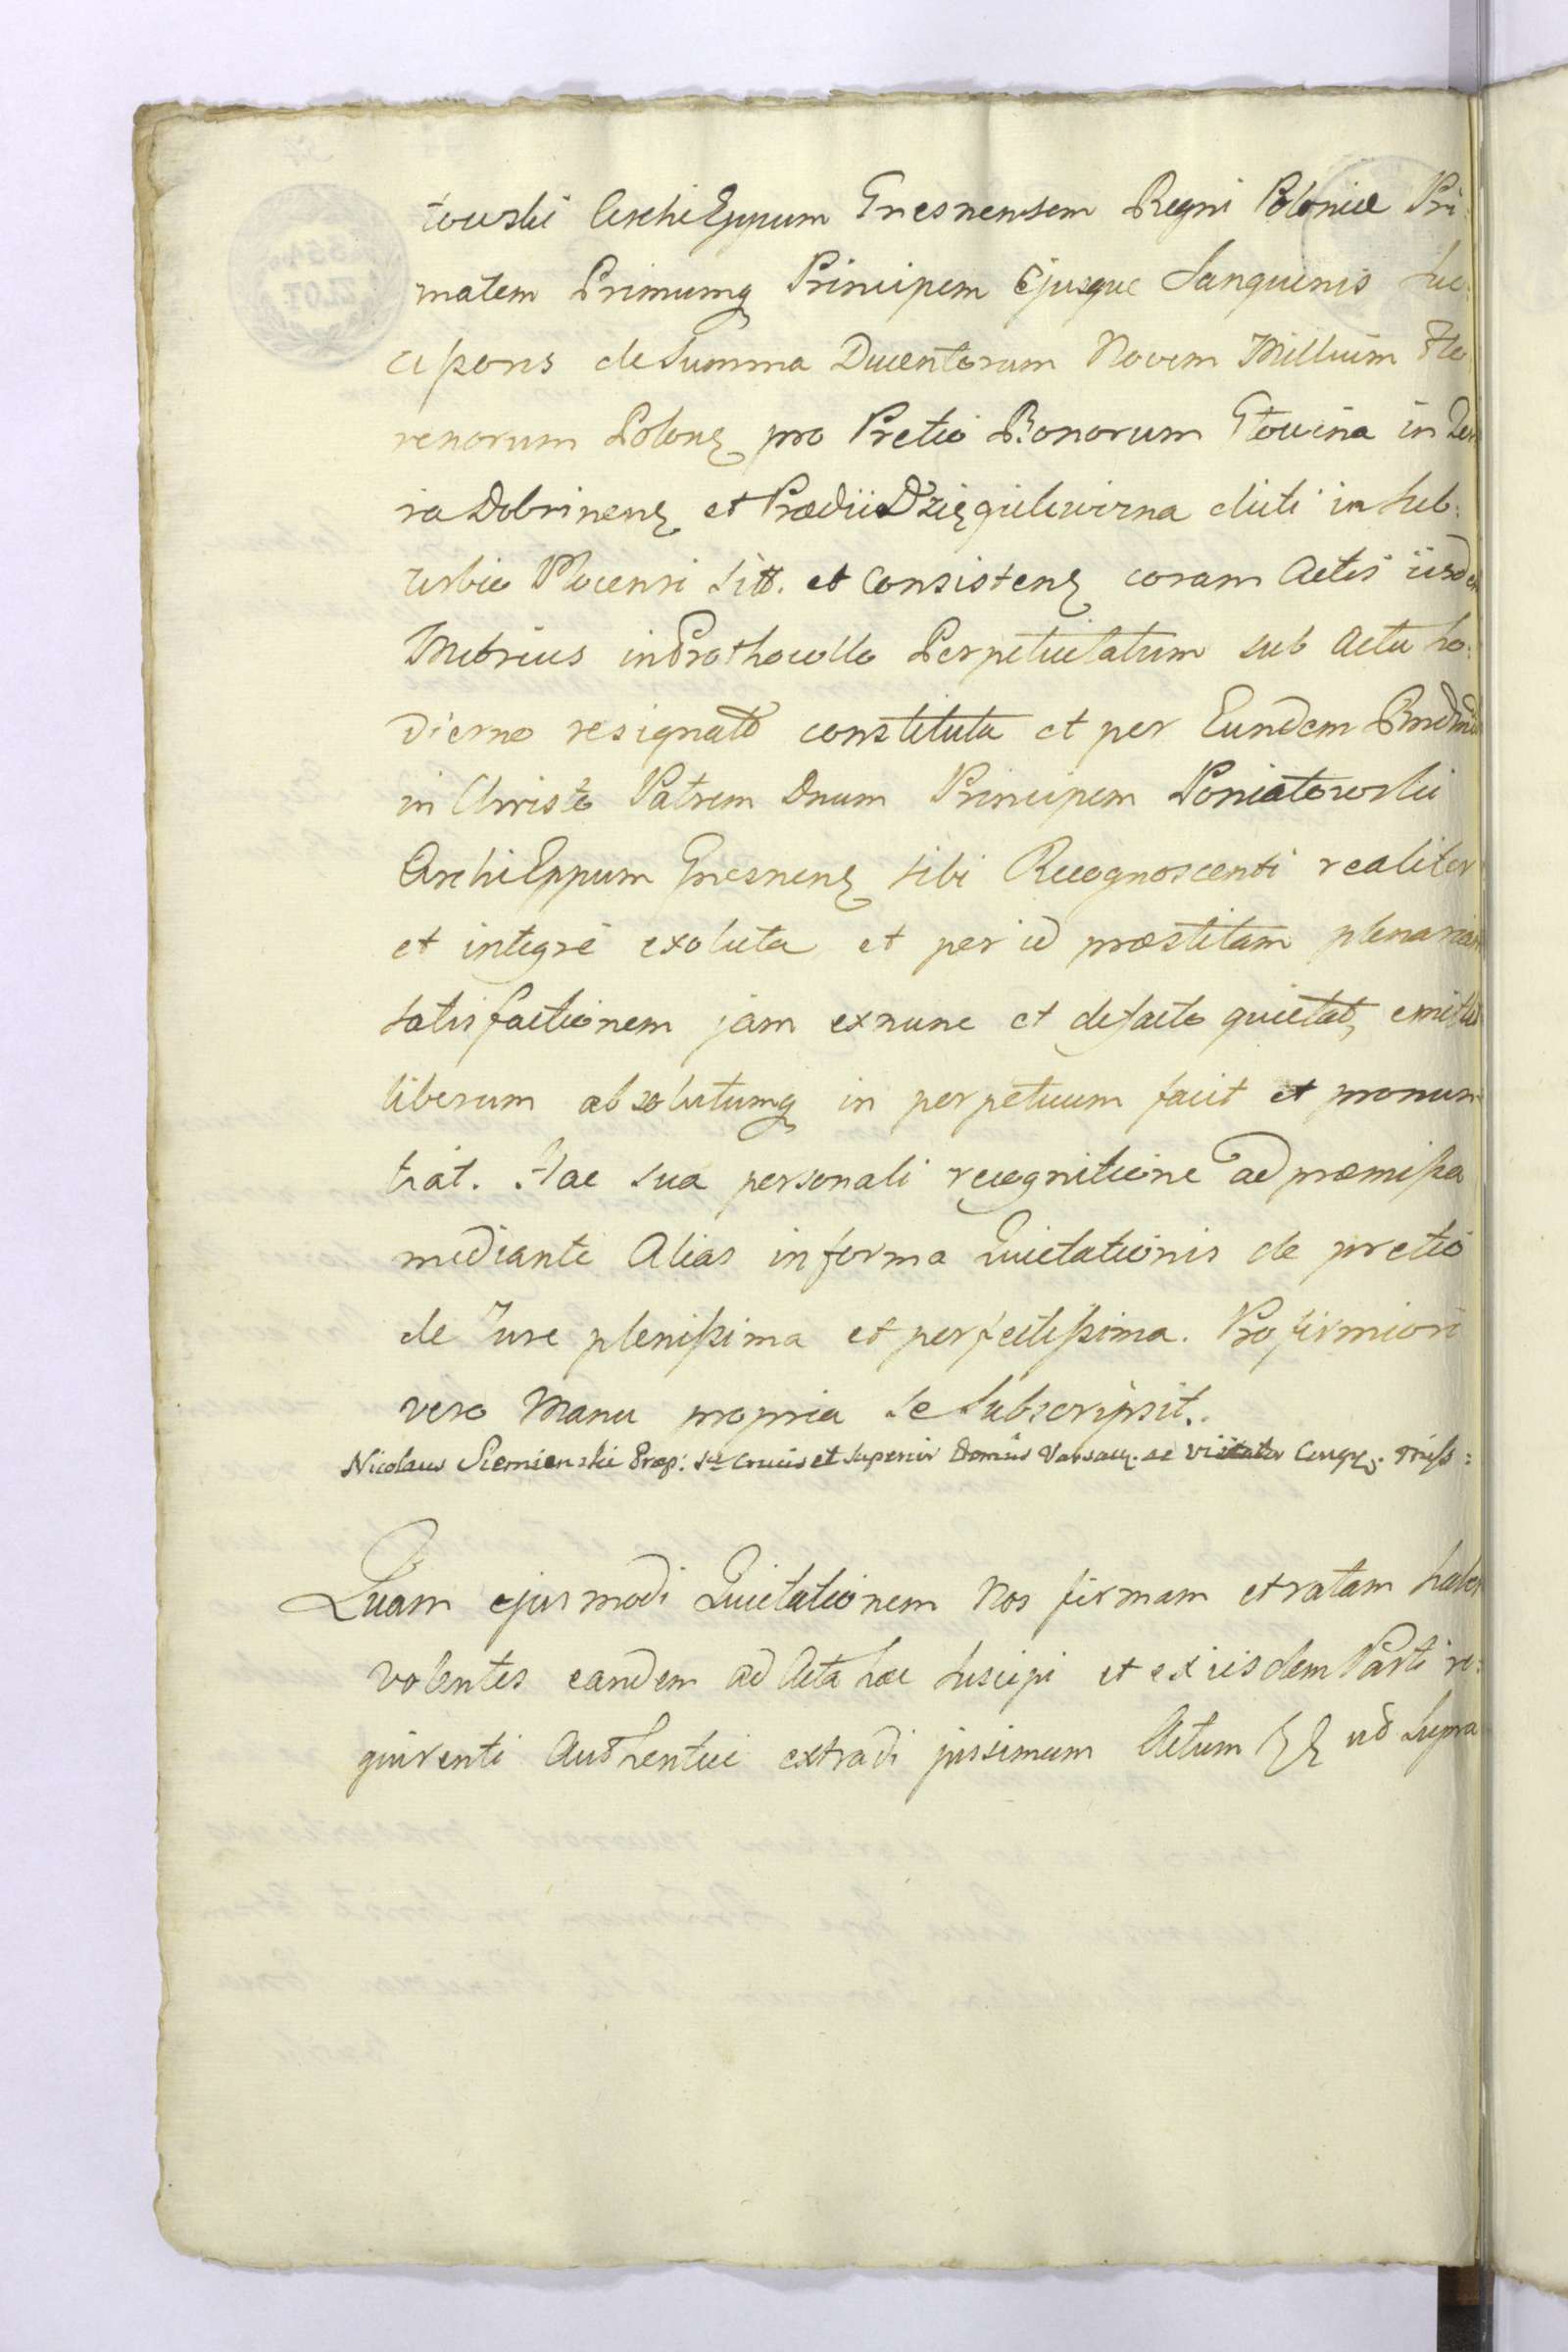 towski ArchiEppum Gnesnensem Regni Poloniæ Pri:
matem Primumq Principem Ejusque Sanguinis Suc:
cessores de Summa Ducentorum Novem Millium Flo
renorum Polonę pro Pretio Bonorum Głowina in Ter
ra Dobrinenę et Prædii Dzięgielewizna dicti in Sub:
urbio Plocensi Sitt. et Consistenę coram Actis iisdem
Metrices in Prothocollo Perpetuitatum sub Actu ho:
dierno resignatt constituta et per Eundem
in Christo Patrem Dnum Principem Poniatowski
ArchiEppum Gnesnenę sibi Recognoscenti realiter
et integre exoluta et per id præstitam plenariam
satisfactionem jam exnunc et defacto quietat, emittit
liberum absolutumq in perpetuum facit et pronun
tiat. Hac sua personali recognitione ad præmissa
mediante Alias in forma Quietationis de pretio
de Jure plenissima et perfectissima. Pro firmiori
vero Manu propria se Subscripsit.
Nicolaus Siemienski Præp: Stæ Crucis et Superior Domus Varsavę. ac Visitator Congrę. Miss:
Quam ejusmodi Quietationem Nos firmam et ratam haberi
volentes eandem ad Acta hæc suscipi et ex iisdem Parti re:
quirenti Authentice extradi jussimum Actum ut Supra